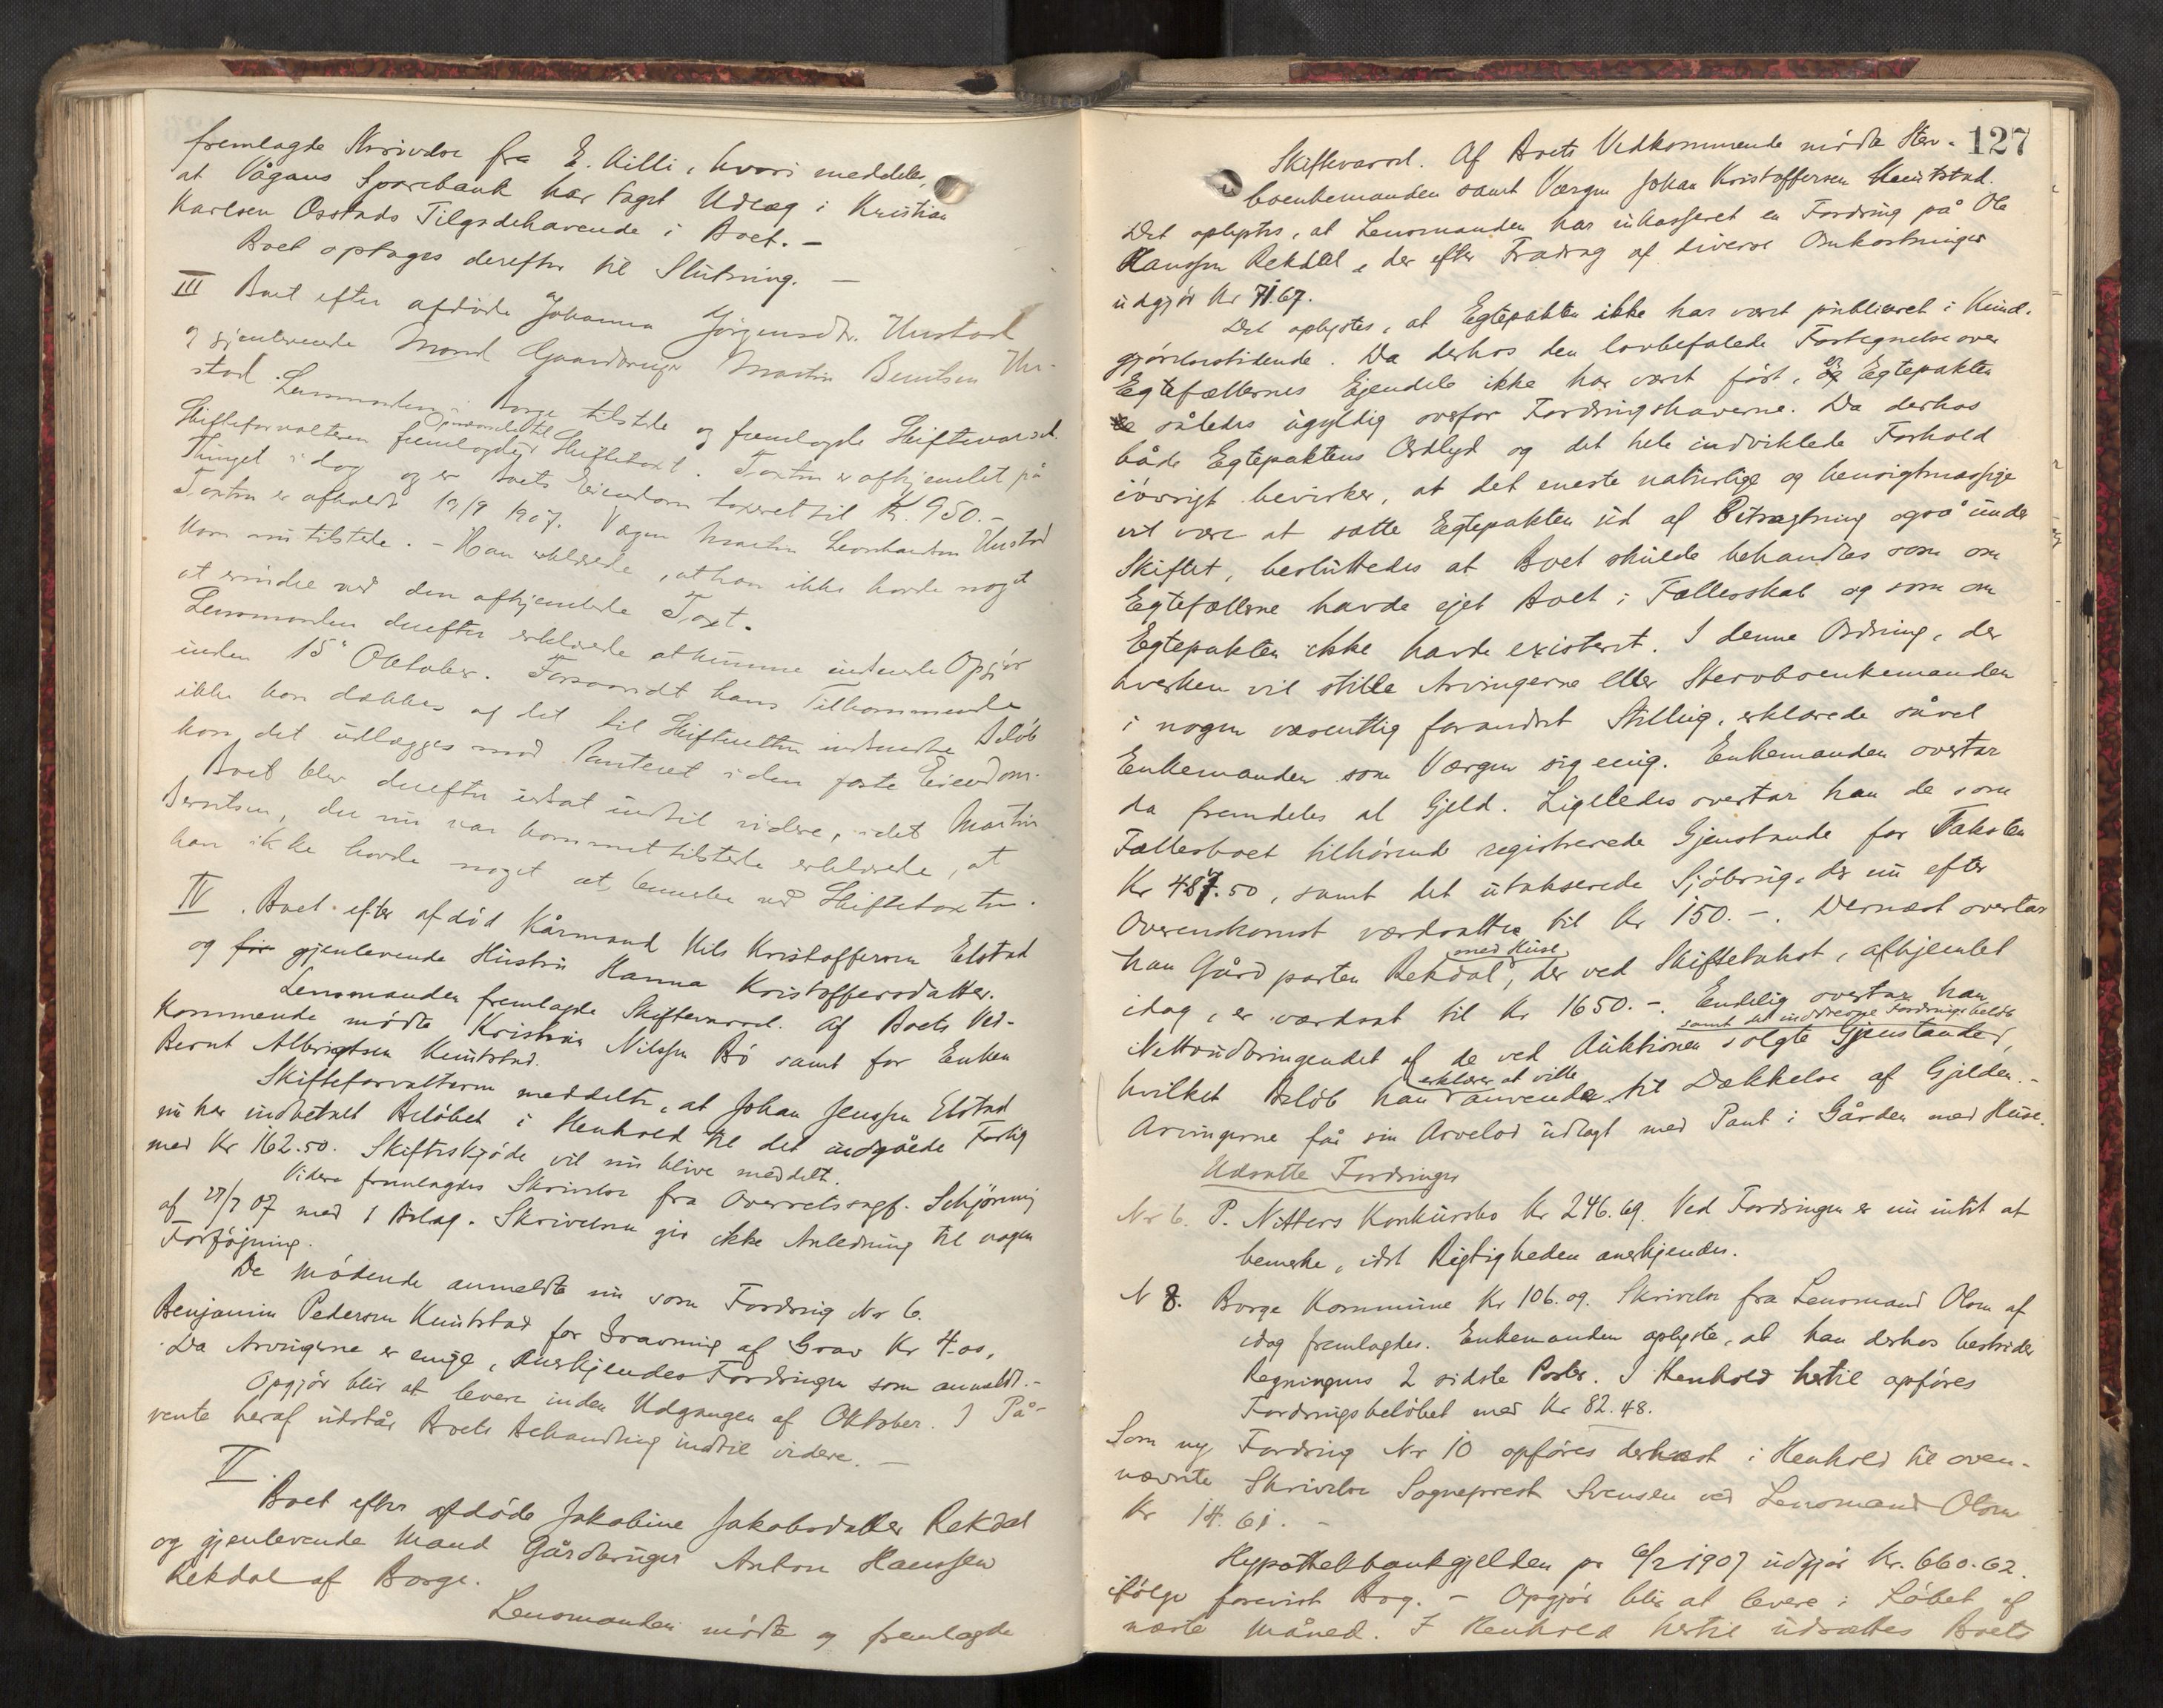 fremlagde Skrivelse fra E. Killi, hvori meddeles,
at Vågans Sparebank har taget Udlæg i Kristian
Karlsen Osstads Tilgodehavende i Boet. –
Boet optages derefter til Slutning. –
III Boet efter afdøde Johanna Jörgensdtr. Unstad
og gjenlevende Mand Gaardbruger Martin Berntsen Un-
stad.
Lensmanden i Borge tilstede og fremlagde Skiftevarsel.
Skifteforvalteren fremlagde Skiftetaxt. Taxten er afhjemlet på
Thinget i dag og er Boets Eiendom taxeret til Kr. 950.–
Taxten er afholdt 19/9 1907. Værgen Martin Leonhardsen Unstad
kom nu tilstede. – Han erklærede, at han ikke havde noget
at erindre ved den afhjemlede Taxt.
Lensmanden derefter erklærede at kunne indsende Opgjør
inden 15 Oktober. Forsaavidt hans Tilkommende
ikke kan dækkes af det til Skifteretten indsendte Beløb
kan det udlægges mod Panteret i den faste Eiendom.
Boet blev derefter udsat indtil videre, idet Martin
Berntsen, der nu var kommet tilstede erklærede, at
han ikke havde noget at bemerke ved Skiftetaxten.
IV. Boet efter afdöd Kårmand Nils Kristoffersen Elstad
og gjenlevende Hustru Hanna Kristoffersdatter.
Lensmanden fremlagde Skiftevarsel. Af Boets Ved-
kommende mödte Kristian Nilssen Bö samt for Enken
Bernt Albrigtsen Knutstad.
Skifteforvalteren meddelte, at Johan Jenssen Elstad
nu har indbetalt Beløbet i Henhold til det indgåede Forlig
med Kr 162.50. Skifteskjöde vil nu blive meddelt.
Videre fremlagdes Skrivelse fra Overretssagf. Schjönning
af 27/7 07 med 1 Bilag. Skrivelsen gir ikke Anledning til nogen
Forföjning.
De mödende anmeldte nu som Fordring Nr 6.
Benjamin Pedersen Knutstad for Gravning af Grav Kr 4.00,
Da Arvingerne er enige, anerkjendes Fordringen som anmeldt.–
Opgjör blir at levere inden Udgangen af Oktober. I På-
vente heraf udstår Boets Behandling indtil videre. –
V.
Boet efter afdöde Jakobine Jakobsdatter Rekdal
og gjenlevende Mand Gårdbruger Anton Hanssen
Rekdal af Borge.
Lensmanden mödte og fremlagde
127
Skiftevarsel. Af Boets Vedkommende mödte Sterv-
boenkemanden samt Værgen Johan Kristoffersen Knutstad.
Det oplystes, at Lensmanden har inkasseret en Fordring på Ole
Hanssen Rekdal, der efter Fradrag af diverse Omkostninger
udgjör Kr 71.67.
Det oplystes, at Egtepakten ikke har været publiceret i Kund-
gjörelsestidende. Da derhos den lovbefalede Fortegnelse over
Egtefællernes Ejendele ikke har været fört, er Egtepakten
således ugyldig overfor Fordringshaverne. Da derhos
både Egtepaktens Ordlyd og det hele indviklede Forhold
iövrigt bevirker, at det eneste naturlige og hensigtmæssige
vil være at sætte Egtepakten ud af Betragtning også under
Skiftet, besluttedes at Boet skulde behandles som om
Egtefællerne havde ejet Boet i Fællesskab og som om
Egtepakten ikke havde existeret. I denne Ordning, der
hverken vil stille Arvingerne eller Stervboenkemanden
i nogen væsentlig forandret Stilling, erklærede såvel
Enkemanden som Værgen sig enig. Enkemanden overtar
da fremdeles al Gjeld. Ligeledes overtar han de som
Fællesboet tilhörende registrerede Gjenstande for Taksten
Kr 487.50, samt det utakserede Sjöbrug, der nu efter
Overenskomst værdsattes til Kr 150.–. Dernæst overtar
han Gårdparten Rekdal med Huse, der ved Skiftetakst, afhjemlet
idag, er værdsat til Kr 1650.–. Endelig overtar han
Nettoudbringendet af de ved Auktionen solgte Gjenstande, samt det inddrevne Fordringsbelöb
hvilket Belöb han erklærer at ville anvende til Dækkelse af Gjælden.–
Arvingerne får sin Arvelod udlagt med Pant i Gården med Huse.
Udsatte Fordringer
Nr 6. P. Nitters Konkursbo Kr 246.69. Ved Fordringen er nu intet at
bemerke, idet Rigtigheden anerkjendes.
N 8. Borge Kommune Kr 106.09. Skrivelse fra Lensmand Olsen af
idag fremlagdes. Enkemanden oplyste, at han derhos bestrider
Regningens 2 sidste Poster. I Henhold hertil opföres
Fordringsbelöbet med Kr 82.48.
Som ny Fordring Nr 10 opföres derhæst i Henhold til oven-
nævnte Skrivelse Sogneprest Svensen ved Lensmand Olsen
Kr 14.61. –
Hypothekbankgjelden pr 6/2 1907 udgjör Kr. 660.62.
ifölge forevist Bog. – Opgjör blir at levere i Löbet af
næste Måned. I Henhold hertil udsættes Boets